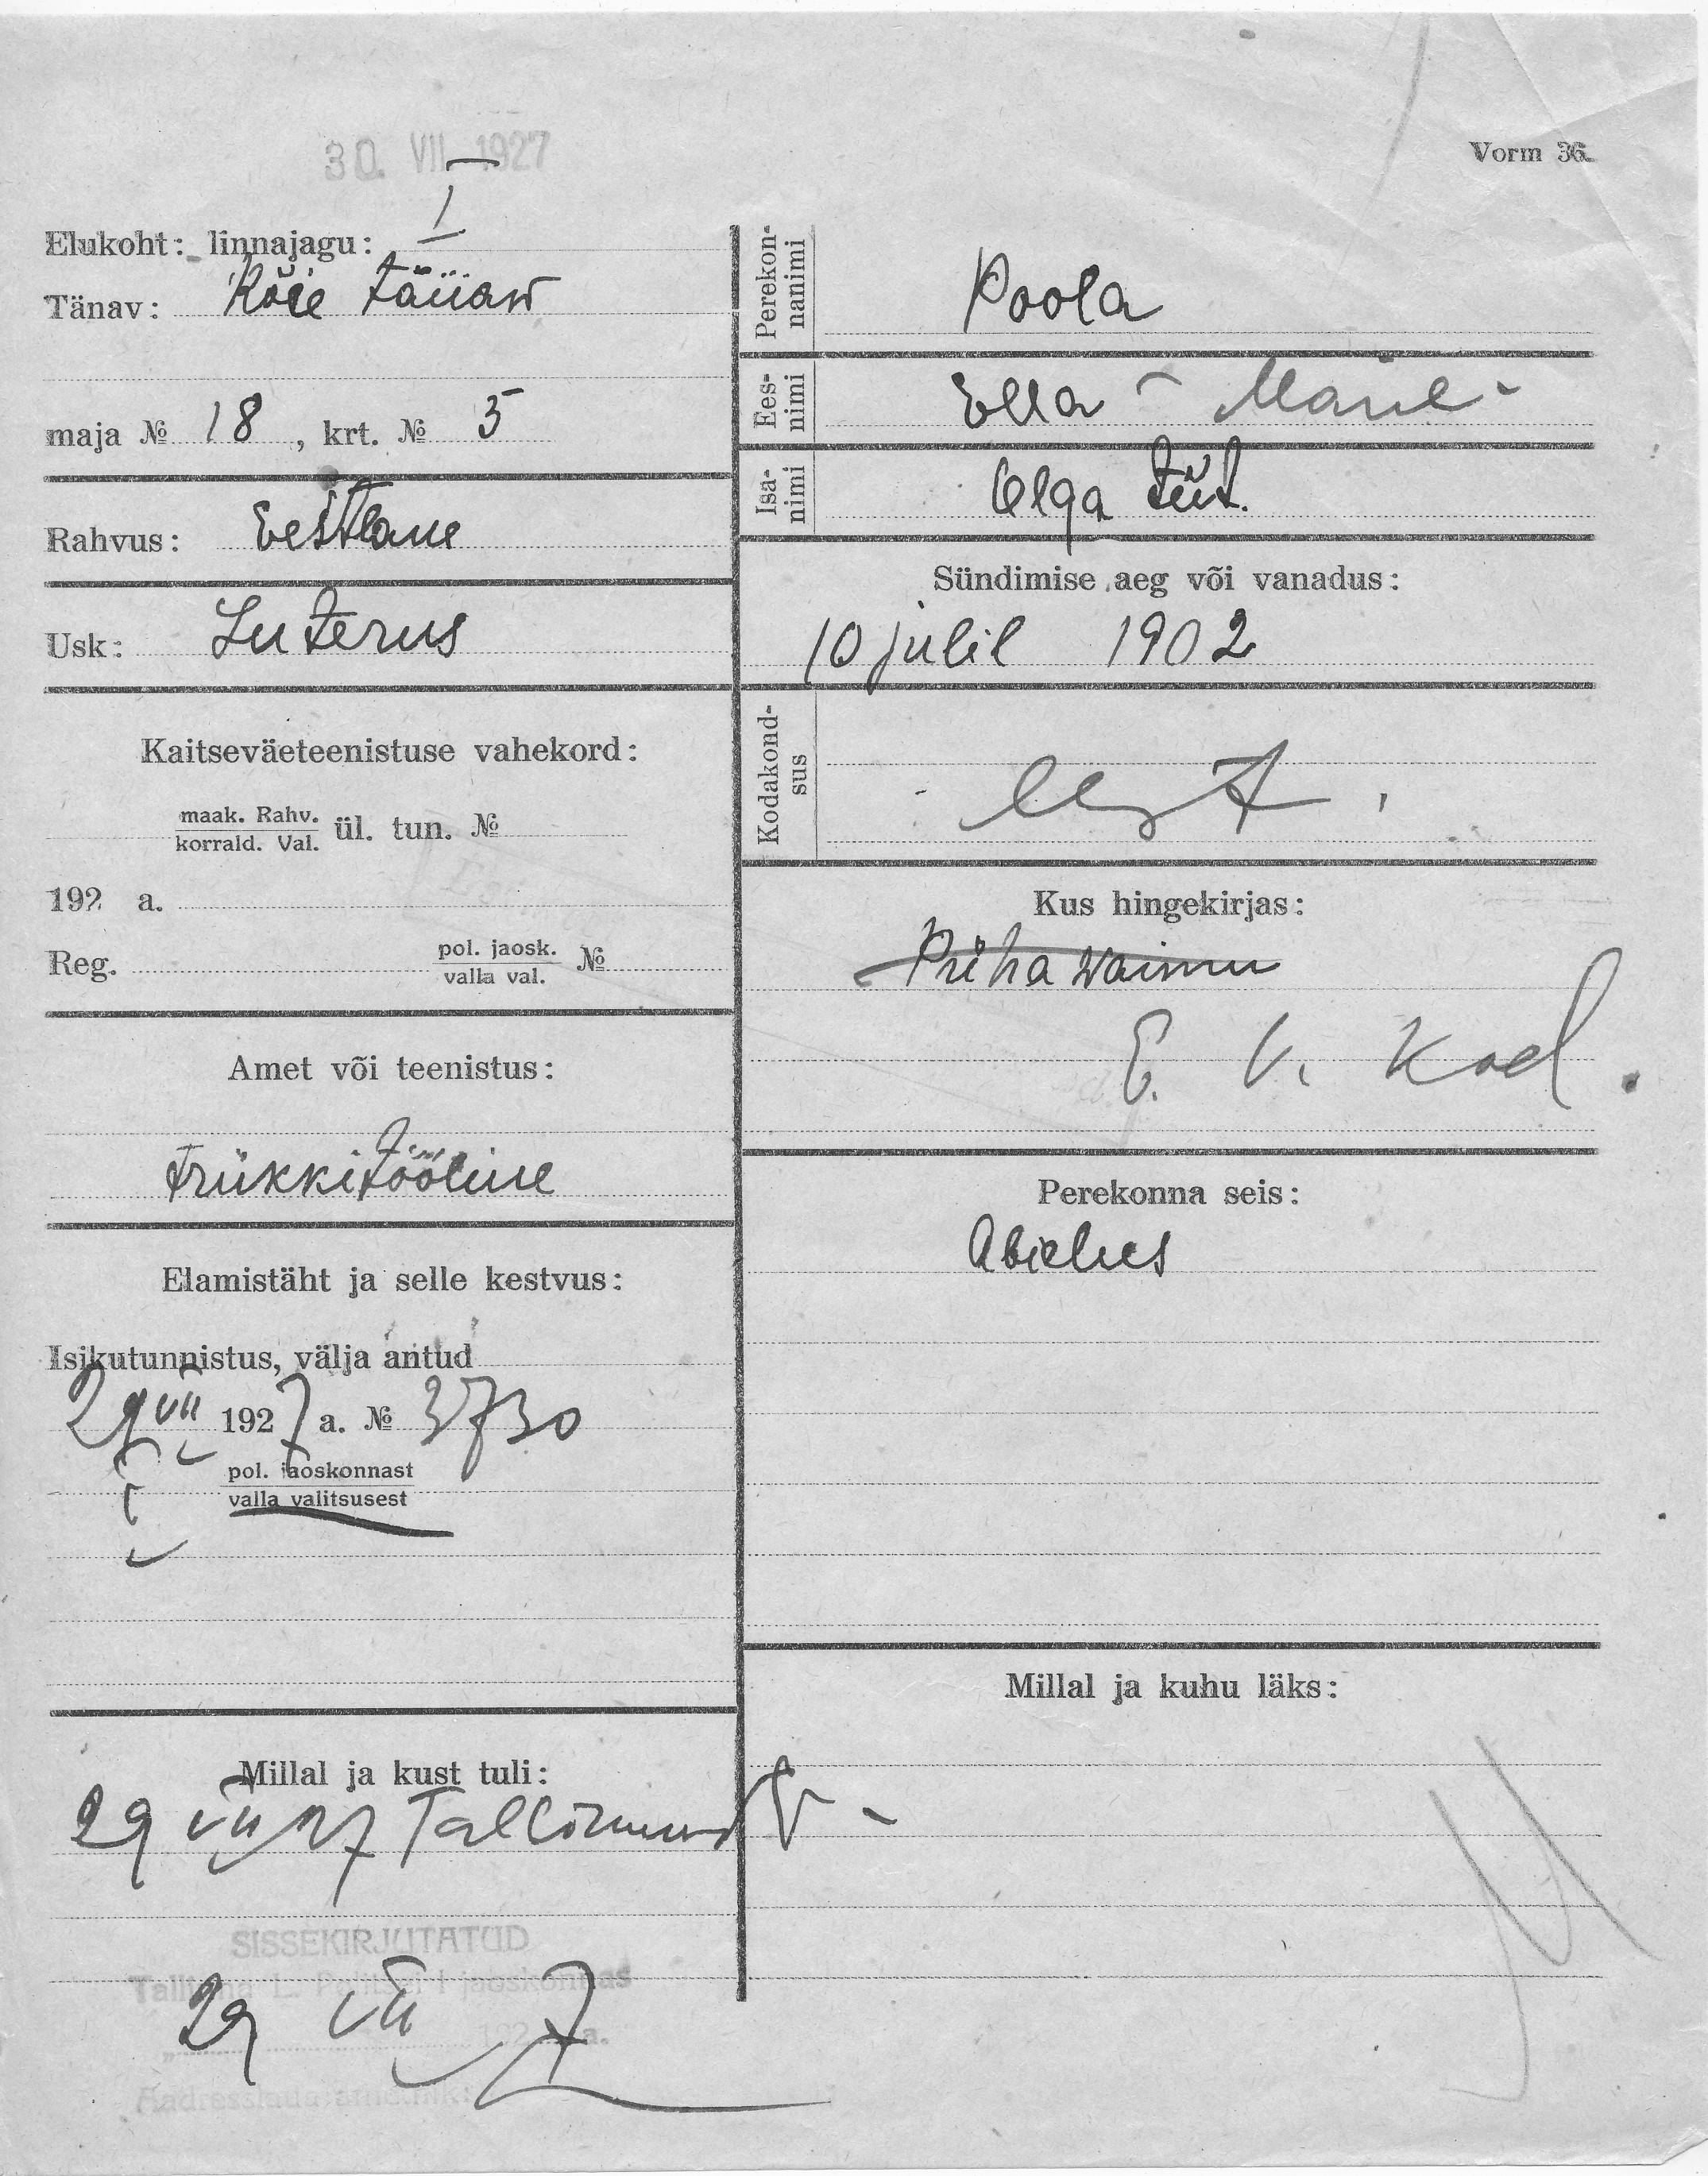 30. VII 1927
Vorm 36.
Elukoht: linnajagu: I
Tänav: Köie tänaw
maja № 18, krt. № 5
Rahvus: Eestlane
Usk: Luterus
Kaitseväeteenistuse vahekord:
maak. Rahv.
korrald. Val. ül. tun. №
192 a.
Reg. pol. jaosk. №
valla val.
Amet või teenistus:
Trükkitööline
Elamistäht ja selle kestvus:
Isikutunnistus, välja antud
29 VII 1927 a. № 3730
I pol. jaoskonnast
valla valitsusest
Millal ja kust tuli:
29 VII 27
SISSEKIRJUTATUD
Tallinna L. Politsei I jaoskonnas
29 VII 7
192 a.
Perekon-
nanimi
Poola
Ees-
nimi
Ella - Marie -
Isa-
nimi
Olga tüt.
Sündimise aeg või vanadus:
10 julil 1902
Kodakond-
sus
eest.
Kus hingekirjas:
Püha waimu
E. V. Kod.
Perekonna seis:
Abielus
Millal ja kuhu läks: